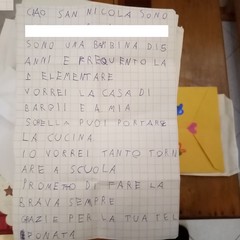 CIAO SAN NICOLA SONO
SONO UNA BAMBINA DI 5
ANNI E FREQUENTO LA
1 ELEMENTARE
VORREI LA CASA DI
BARDII E A MIA
SORELLA PUOI PORTARE
LA CUCINA
IO VORREI TANTO TORN
ARE A SCUOLA
PROMETTO DI FARE LA
BRAVA SEMPRE
GRAZIE PER LA TUA TEL
EFONATA